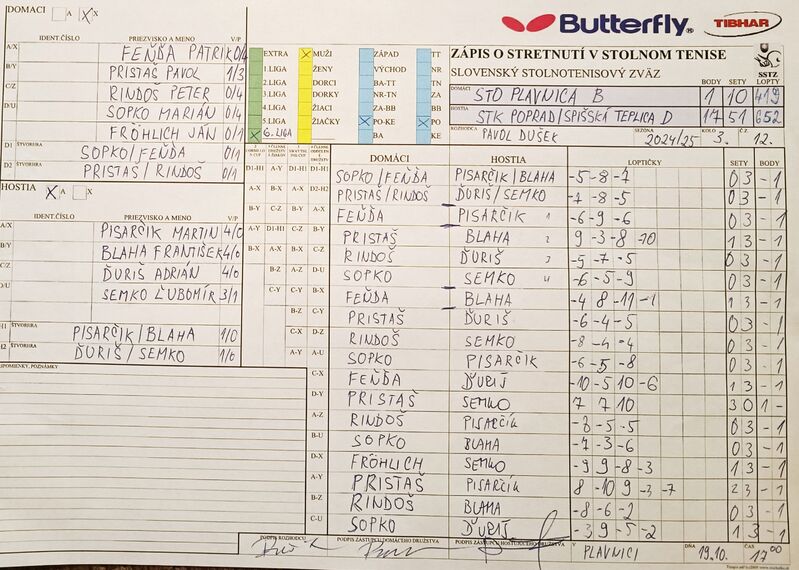 DOMACI A X
Butterfly® TIBHAR
IDENT.ČÍSLO PRIEZVISKO A MENO V/P
A/X FEŇĎA PATRIK 0/4
B/Y PRISTAŠ PAVOL 1/3
C/Z RINDOŠ PETER 0/4
D/U SOPKO MARIÁN 0/4
FRÖHLICH JÁN 0/1
D1 ŠTVORHRA SOPKO/FEŇĎA 0/1
D2 PRISTAŠ/RINDOŠ 0/1
HOSTIA A X
IDENT.ČÍSLO PRIEZVISKO A MENO V/P
A/X PISARČIK MARTIN 4/0
B/Y BLAHA FRANTIŠEK 4/0
C/Z ĎURIŠ ADRIÁN 4/0
D/U SEMKO ĽUBOMÍR 3/1
H1 ŠTVORHRA PISARČIK/BLAHA 1/0
H2 ĎURIŠ/SEMKO 1/0
SPOMIENKY, POZNÁMKY
EXTRA MUŽI ZÁPAD TT
1.LIGA ŽENY VÝCHOD NR
2.LIGA DORCI BA-TT TN
3.LIGA DORKY NR-TN ZA
4.LIGA ŽIACI ZA-BB BB
5.LIGA ŽIAČKY PO-KE PO
6.LIGA KE
ZÁPIS O STRETNUTÍ V STOLNOM TENISE
SLOVENSKÝ STOLNOTENISOVÝ ZVÄZ SSTZ
BODY SETY LOPTY
DOMÁCI STO PLAVNICA B 1 10 419
HOSTIA STK POPRAD/SPIŠSKÁ TEPLICA D 17 51 652
ROZHODCA PAVOL DUŠEK SEZÓNA 2024/25 KOLO 3. Č.Z. 12.
DOMÁCI HOSTIA LOPTIČKY SETY BODY
D1-H1 A-X D1-H1 A-X D1-H1 SOPKO/FEŇĎA PISARČIK/BLAHA -5 -8 -7 0 3 -1
A-X B-X D2-H2 PRISTAŠ/RINDOŠ ĎURIŠ/SEMKO -7 -8 -5 0 3 -1
B-Y C-Z A-X FEŇĎA PISARČIK 1 -6 -9 -6 0 3 -1
A-Y D1-H1 C-Z B-Y PRISTAŠ BLAHA 2 9 -3 -8 -10 1 3 -1
B-X A-X C-Z RINDOŠ ĎURIŠ 3 -5 -7 -5 0 3 -1
B-Z A-Z D-U SOPKO SEMKO 4 -6 -5 -9 0 3 -1
C-Y B-X FEŇĎA BLAHA -4 8 -11 -1 1 3 -1
B-Z C-Y PRISTAŠ ĎURIŠ -6 -4 -5 0 3 -1
C-X D-Z RINDOŠ SEMKO -8 -4 -4 0 3 -1
A-Y A-U SOPKO PISARČIK -6 -5 -8 0 3 -1
C-X FEŇĎA ĎURIŠ -10 -5 10 -6 1 3 -1
D-Y PRISTAŠ SEMKO 7 7 10 3 0 1 -
A-Z RINDOŠ PISARČÍK -8 -5 -5 0 3 -1
B-U SOPKO BLAHA -7 -3 -6 0 3 -1
D-X FRÖHLICH SEMKO -9 9 -8 -3 1 3 -1
A-Y PRISTAŠ PISARČÍK 8 -10 9 -3 -7 2 3 -1
B-Z RINDOŠ BLAHA -8 -6 -2 0 3 -1
C-U SOPKO ĎURIŠ -3 9 -5 -2 1 3 -1
PODPIS ROZHODCU PODPIS ZÁSTUPCU DOMÁCEHO DRUŽSTVA PODPIS ZÁSTUPCU HOSŤUJÚCEHO DRUŽSTVA V PLAVNICI DŇA 19.10. ČAS 17 00